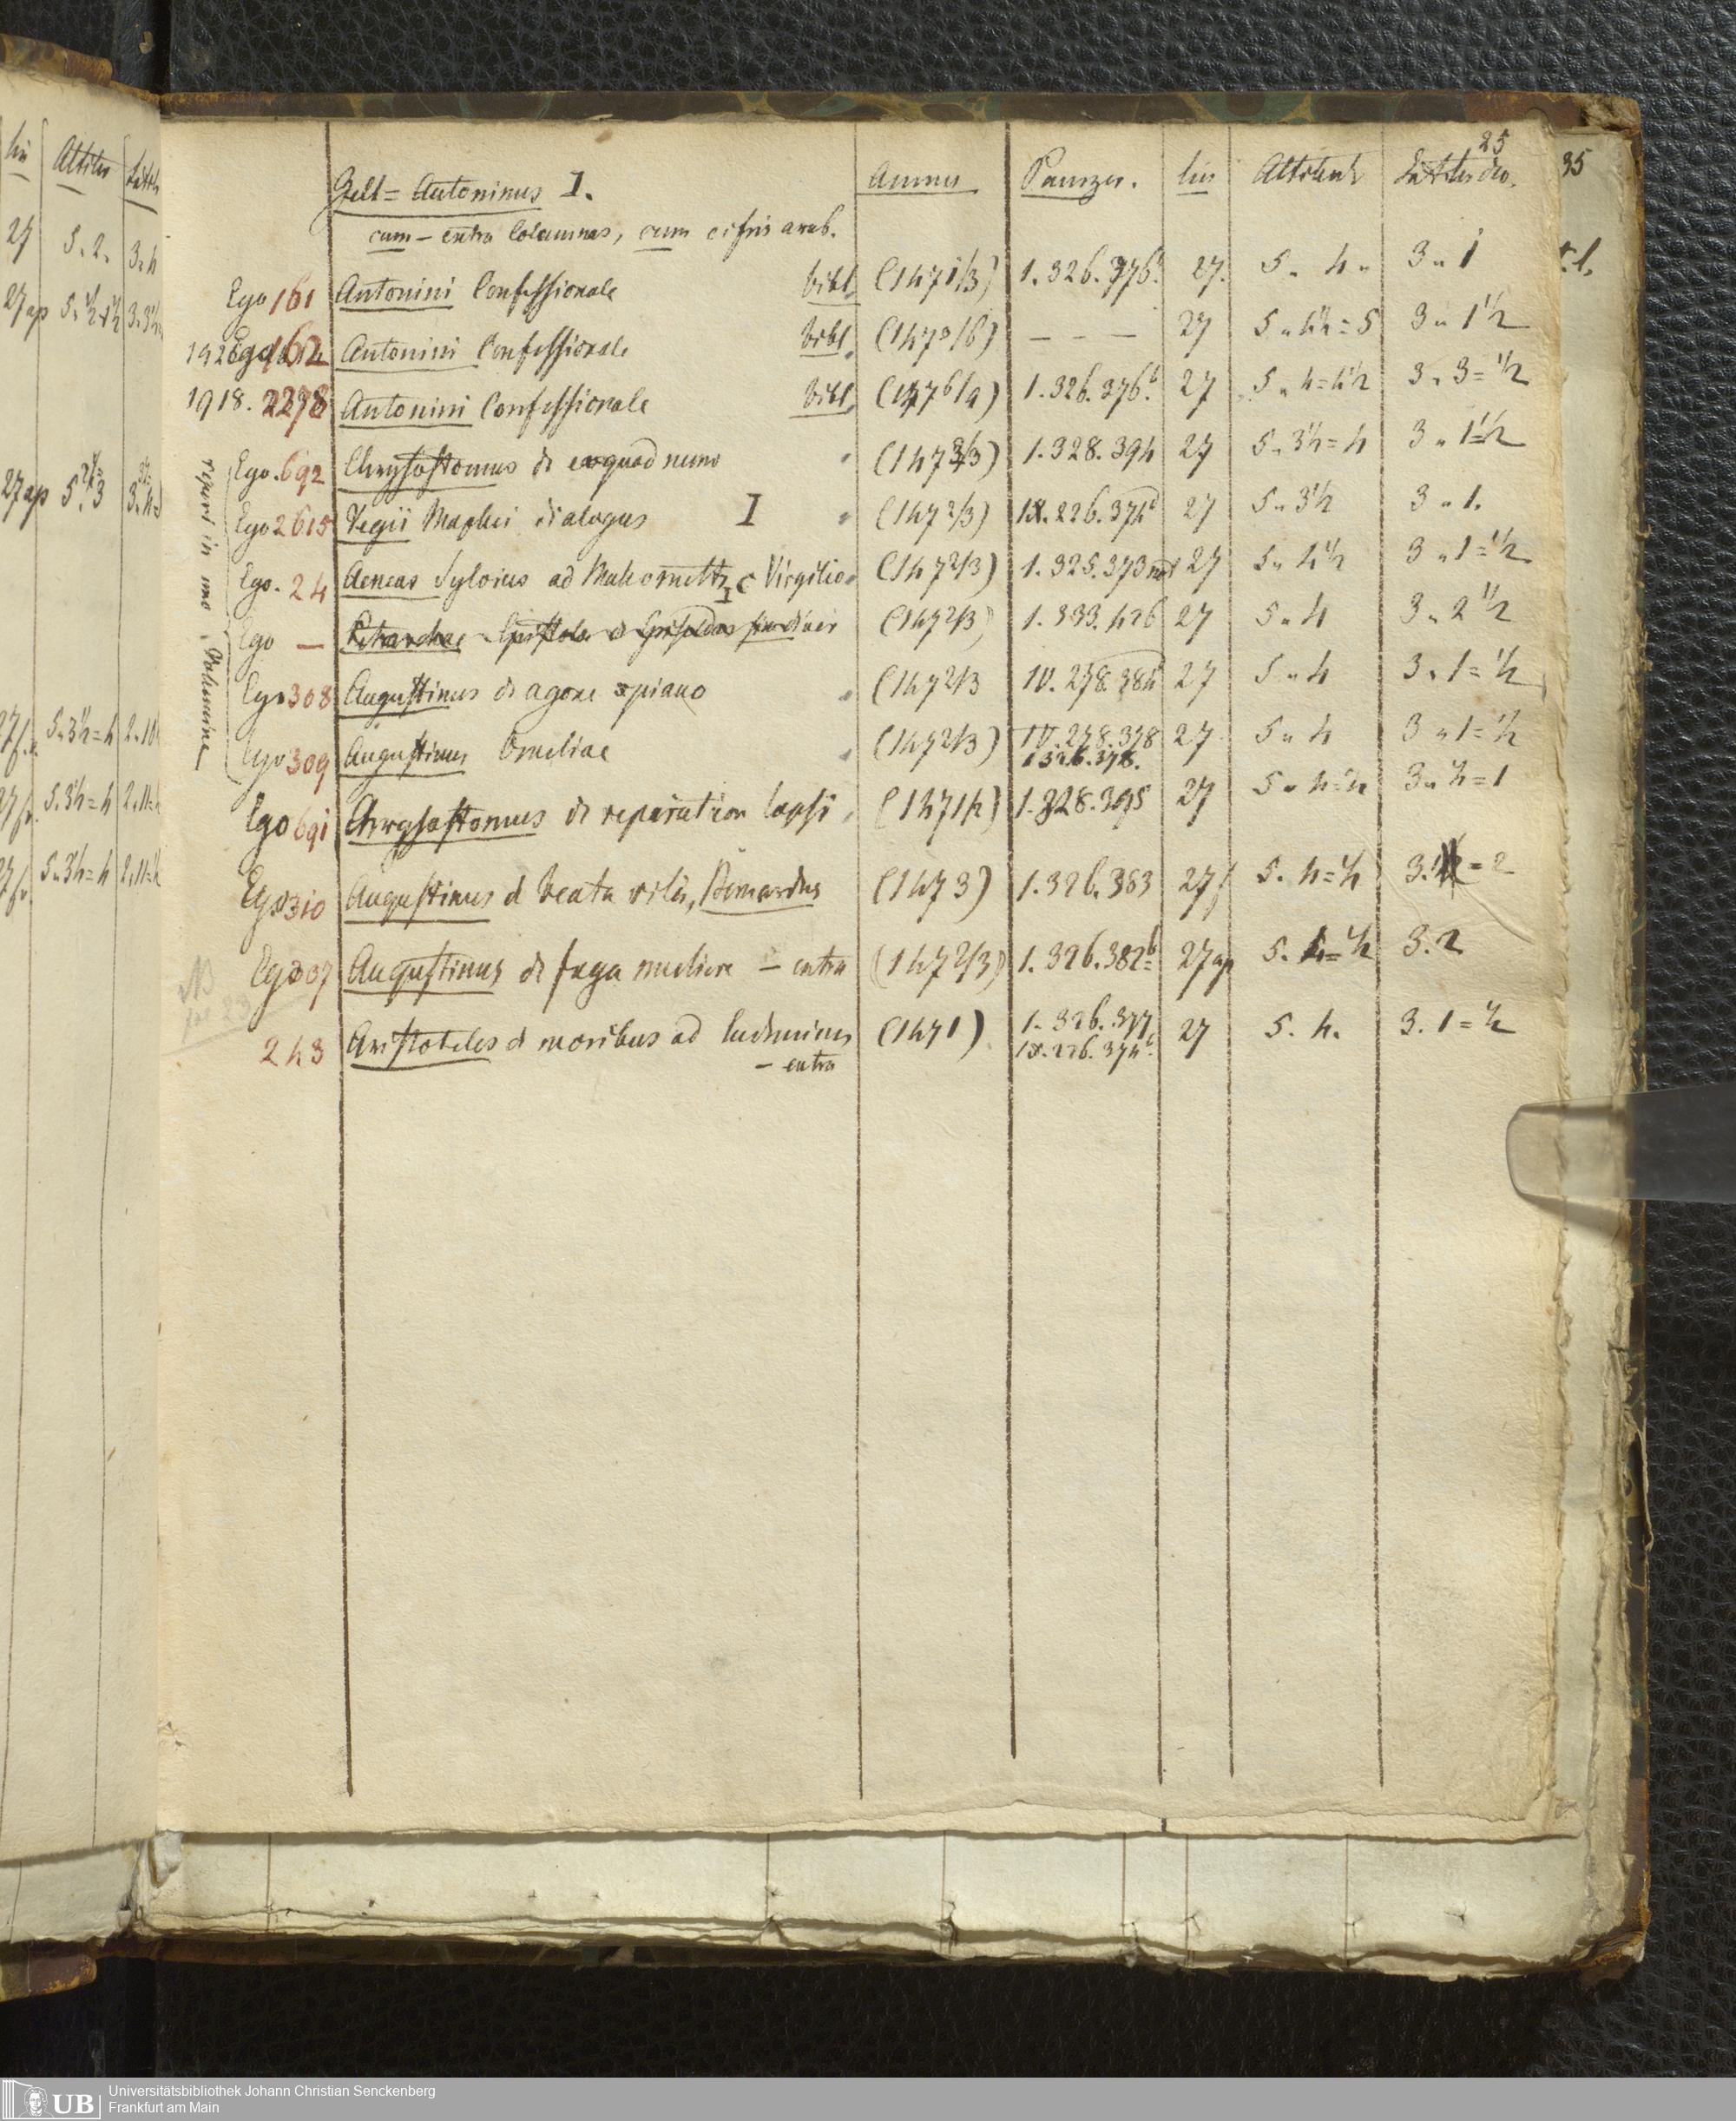 lin Altitu Latit
27 5.2. 3.4
27 ap
27 ap
5.3½=4
5.3½=4
5.3½=4
25
35
Zell = Antoninus I. Annus Panzer. lin Altitud Latitudo.
cum – extra Columnas, cum cifris arab.
Ego 161 Antonini Confessionale bibl (1471/3) 1.326.376b 27. 5 „ 4 „ 3 „ 1
1926 Ego 162 Antonini Confessionale bibl – – – 27 5 „ 4½=5 3 „ 1½
1918. 2278 Antonini Confessionale bibl 1.326.376b. 27 5 „ 4=4½ 3 „ 3=½
reperi in uno Volumine
Ego. 692 Chrysostomus d eo quod nemo 1.328.394 27 5 „ 3½=4 3 „ 1=½
Ego 2615 Vegii Maphei dialogus I (1472/3) IX.226.374d 27 5 „ 3½ 3 „ 1.
Ego. 24 Aeneas Sylvius ad Mahomett, c Virgilio (1472/3) 1.325.373 27 5 „ 4½ 3 „ 1=½
Ego — Petrarchae (1472/3) 1.333.426 27 5 „ 4 3 „ 2½
Ego 308 Augustinus d agone xpiano (1472/3 IV.278.384 27 5 „ 4 3 „ 1=½
Ego 309 Augustinus Omeliae (1472/3) IV.278.378 27 5 „ 4 3 „ 1=½
1326.378.
Ego 691 Chrysostomus d reparation lapsi 1.328.395 27 3 „ ½=1
Ego 310 Augustinus d beata vita, Bernardus (1473) 1.326.383 27 5. 4=½ = 2
Ego 307 Augustinus d fuga muliere – extra (1472/3) 1.326.382b 27 ap 5. 4=½ 3.2
243 Aristoteles d moribus ad Eudemium (1471) 1.326.377 27 5. 4. 3. 1=½
– extra IX.226.374b.
UB
Universitätsbibliothek Johann Christian Senckenberg
Frankfurt am Main